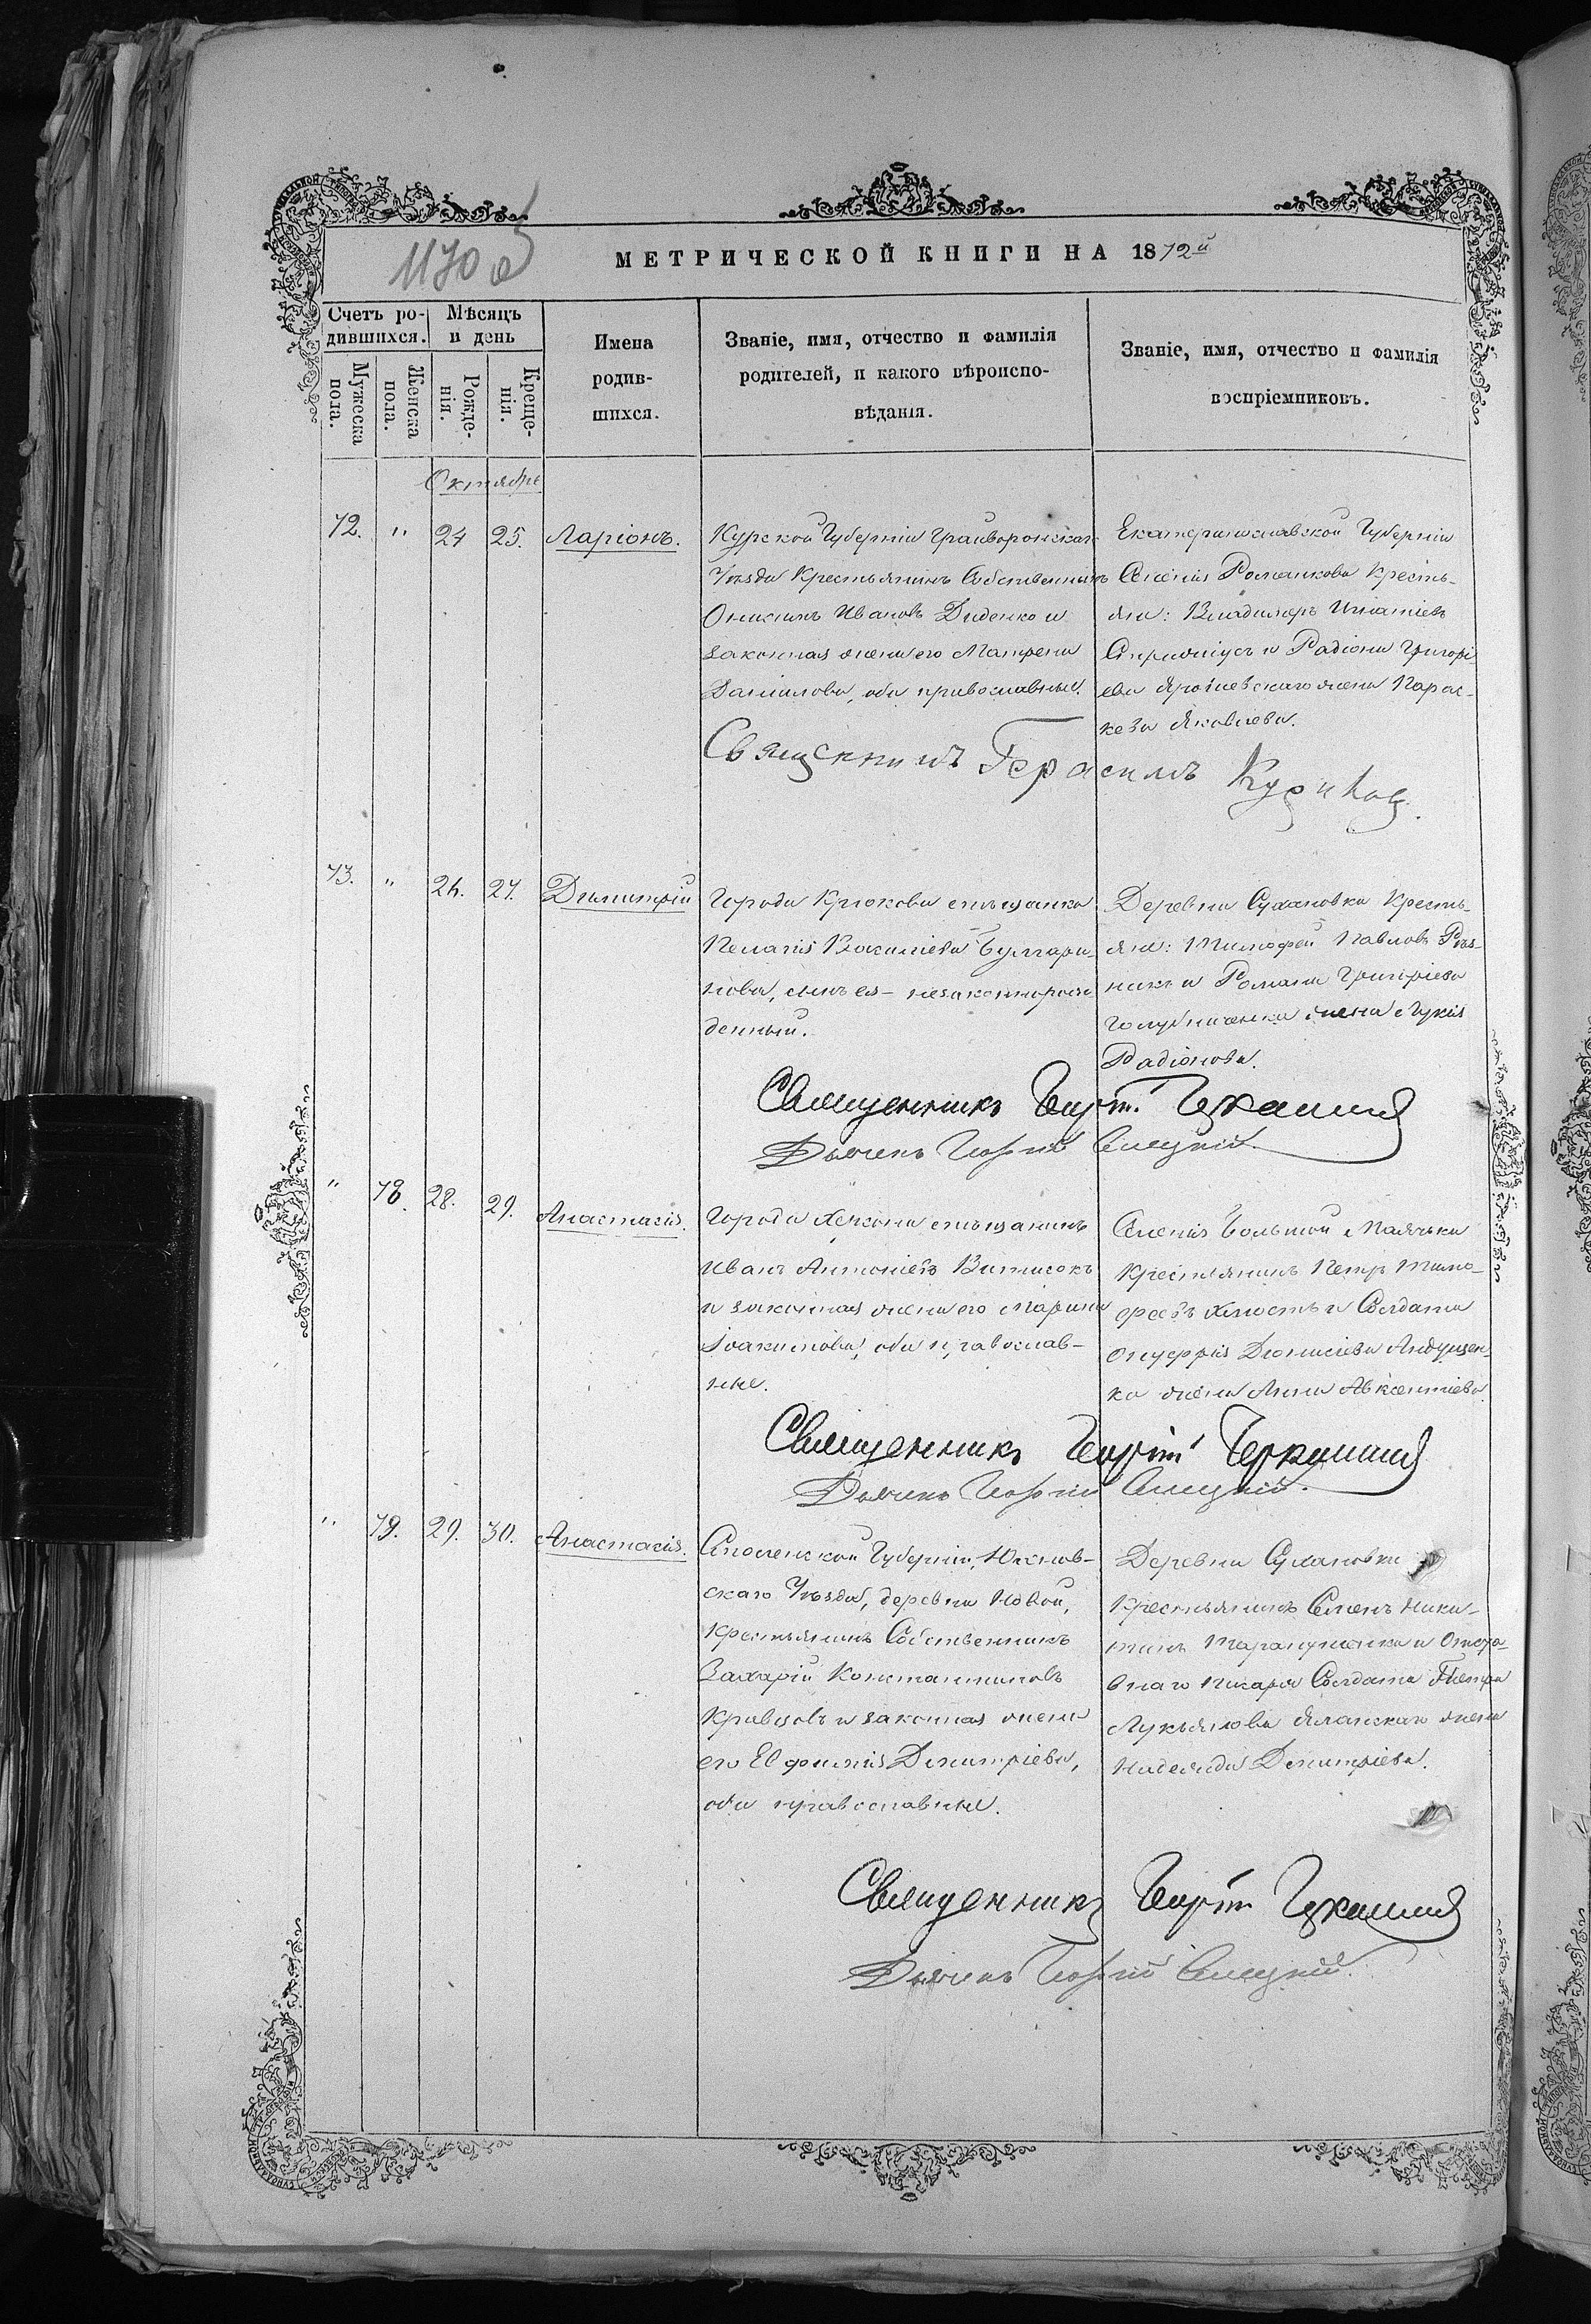 1170 об
МЕТРИЧЕСКОЙ КНИГИ НА 1872й
Счетъ ро-
дившихся.
Мѣсяцъ
и день
Мужеска
пола.
Женска
пола.
Рожде-
нія.
Креще-
нія.
Имена
родив-
шихся.
Званіе, имя, отчество и фамилія
родителей, и какого вѣроиспо-
вѣданія.
Званіе, имя, отчество и фамилія
воспріемниковъ.
Октябрь
72. " 24 25. Ларіонъ.
Курской Губерніи Грайворонскаго
Уѣзда Крестьянинъ Собственникъ
Ивановъ Диденко и
законная жена его Матрена
Даніилова, оба православные.
Екатеринославской Губерніи
Селенія Романкова Кресть-
яне: Владимеръ Игнатіевъ
и Радіона Григорі-
ева жена Парас-
кева Яковлева.
Священникъ Герасимъ
73. " 26. 27. Димитрій
Города Крюкова мѣщанка
Пелагія Василіева Булгари-
нова, сынъ ея - незаконнорож-
денный.
Деревни Сухановки Кресть-
яне: Тимофей Павловъ Рѣз-
никъ и Романа Григоріева
Голубниченка жена Лукія
Радіонова.
Священникъ
Дьячекъ Георгій
" 78. 28. 29. Анастасія.
Города Херсона мѣщанинъ
Иванъ Антоніевъ
и законная жена его Марина
Іоакимова, оба православ-
ные.
Селенія Большой Маячки
Крестьянинъ Петръ Тимо-
феевъ и Солдата
Онуфрія Діонисіева Андрущен-
ка жена Анна Авксентіева
Священникъ Георгій
Дьячекъ Георгій
" 79. 29. 30. Анастасія.
Смоленской Губерніи, Юхнов-
скаго Уѣзда, деревни Новой,
Крестьянинъ Собственникъ
Захарій Константиновъ
Кравцовъ и законная жена
его Евфимія Димитріева,
оба православные.
Деревни Сухановки
Крестьянинъ Семенъ Ники-
тинъ и
Солдата Петра
Лукьянова жена
Надежда Димитріева.
Священникъ
Дьячекъ Георгій